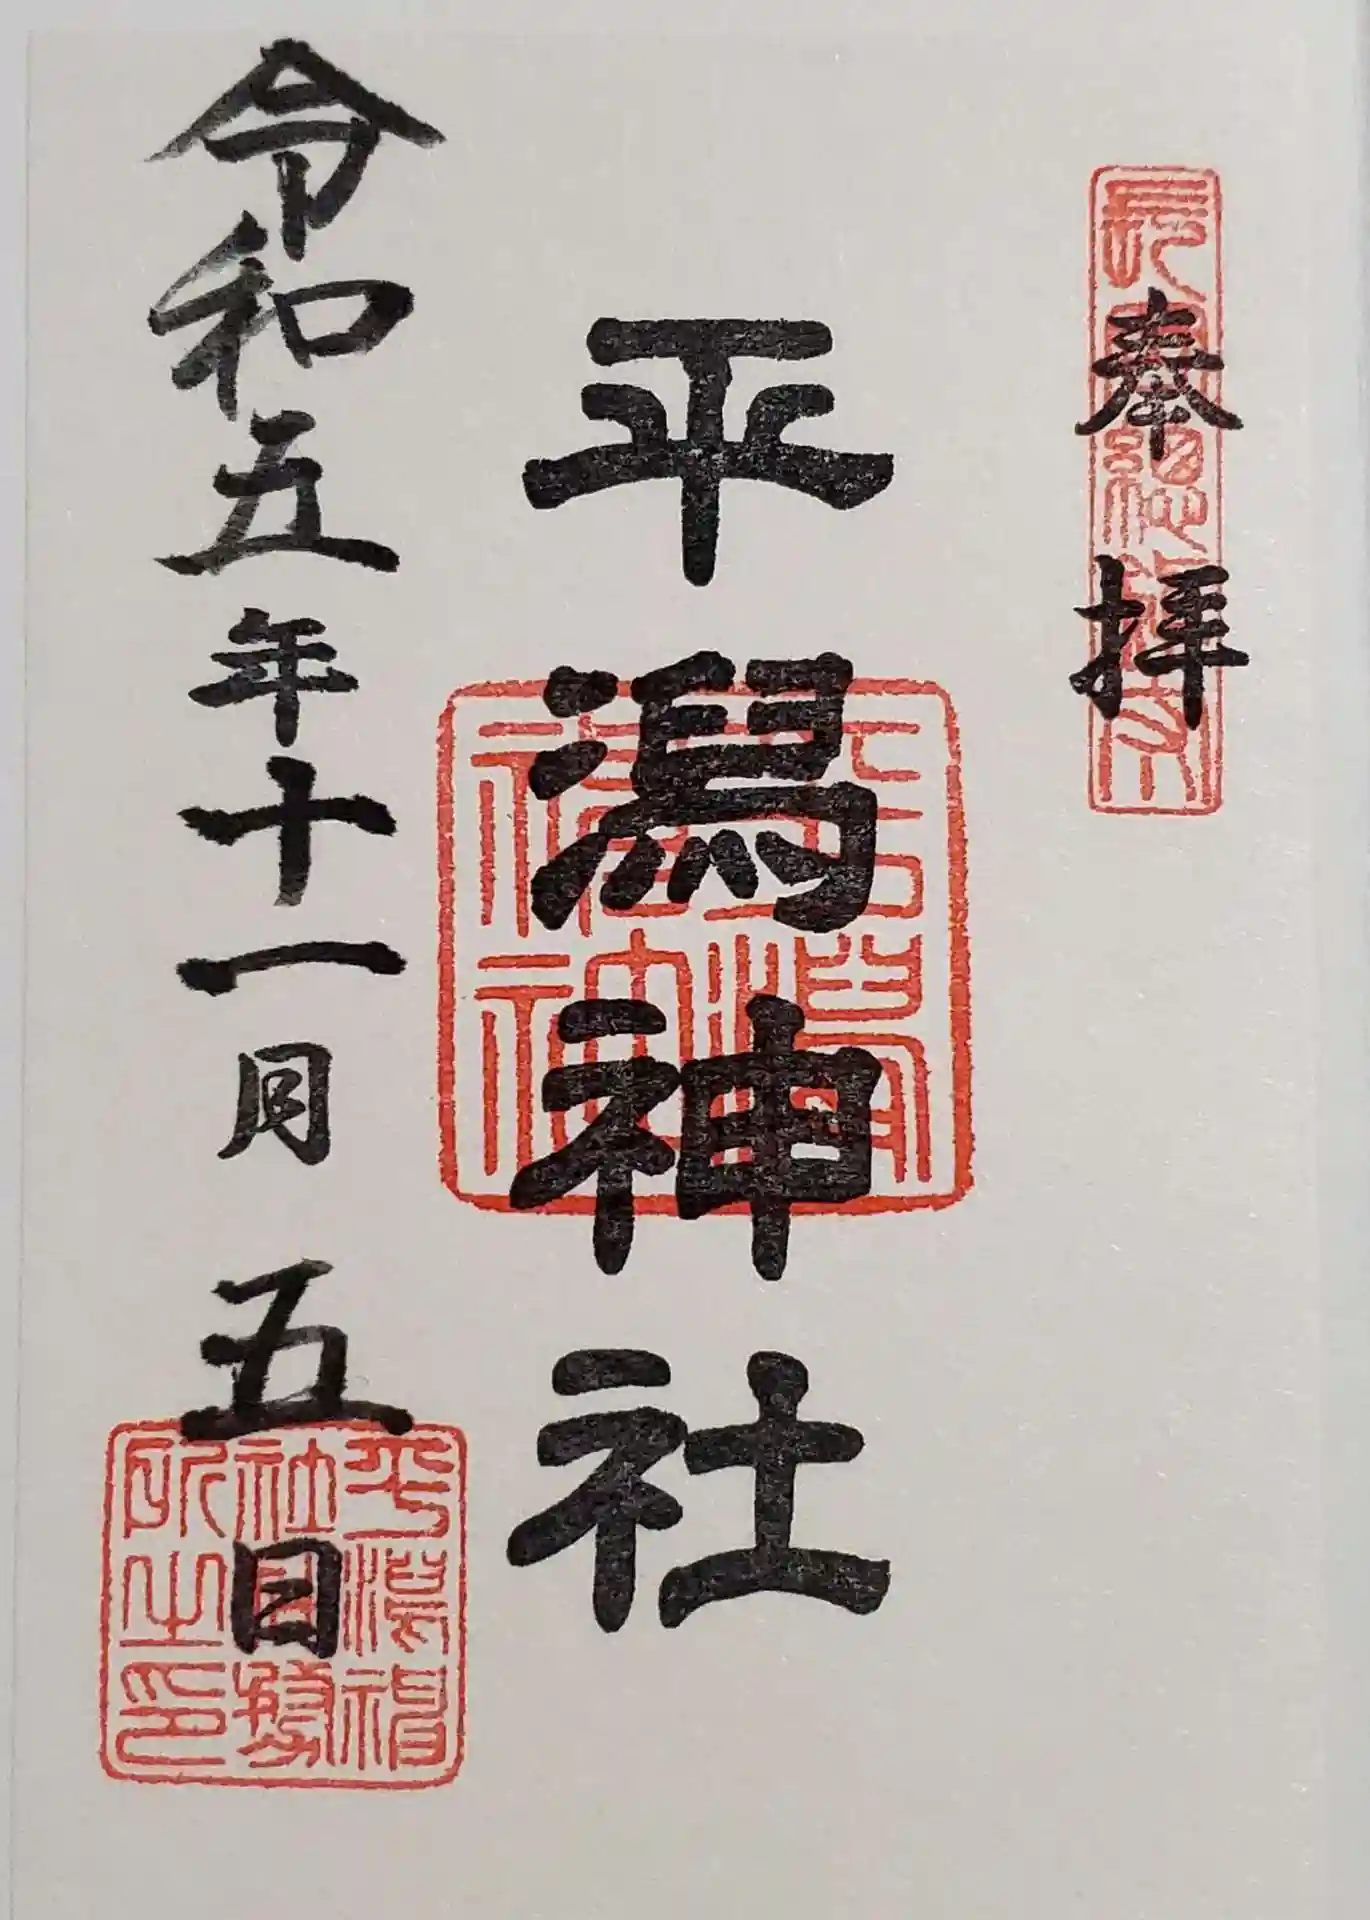 奉拝
平潟神社
令和五年十一月五日
平潟神
社社務
所之印